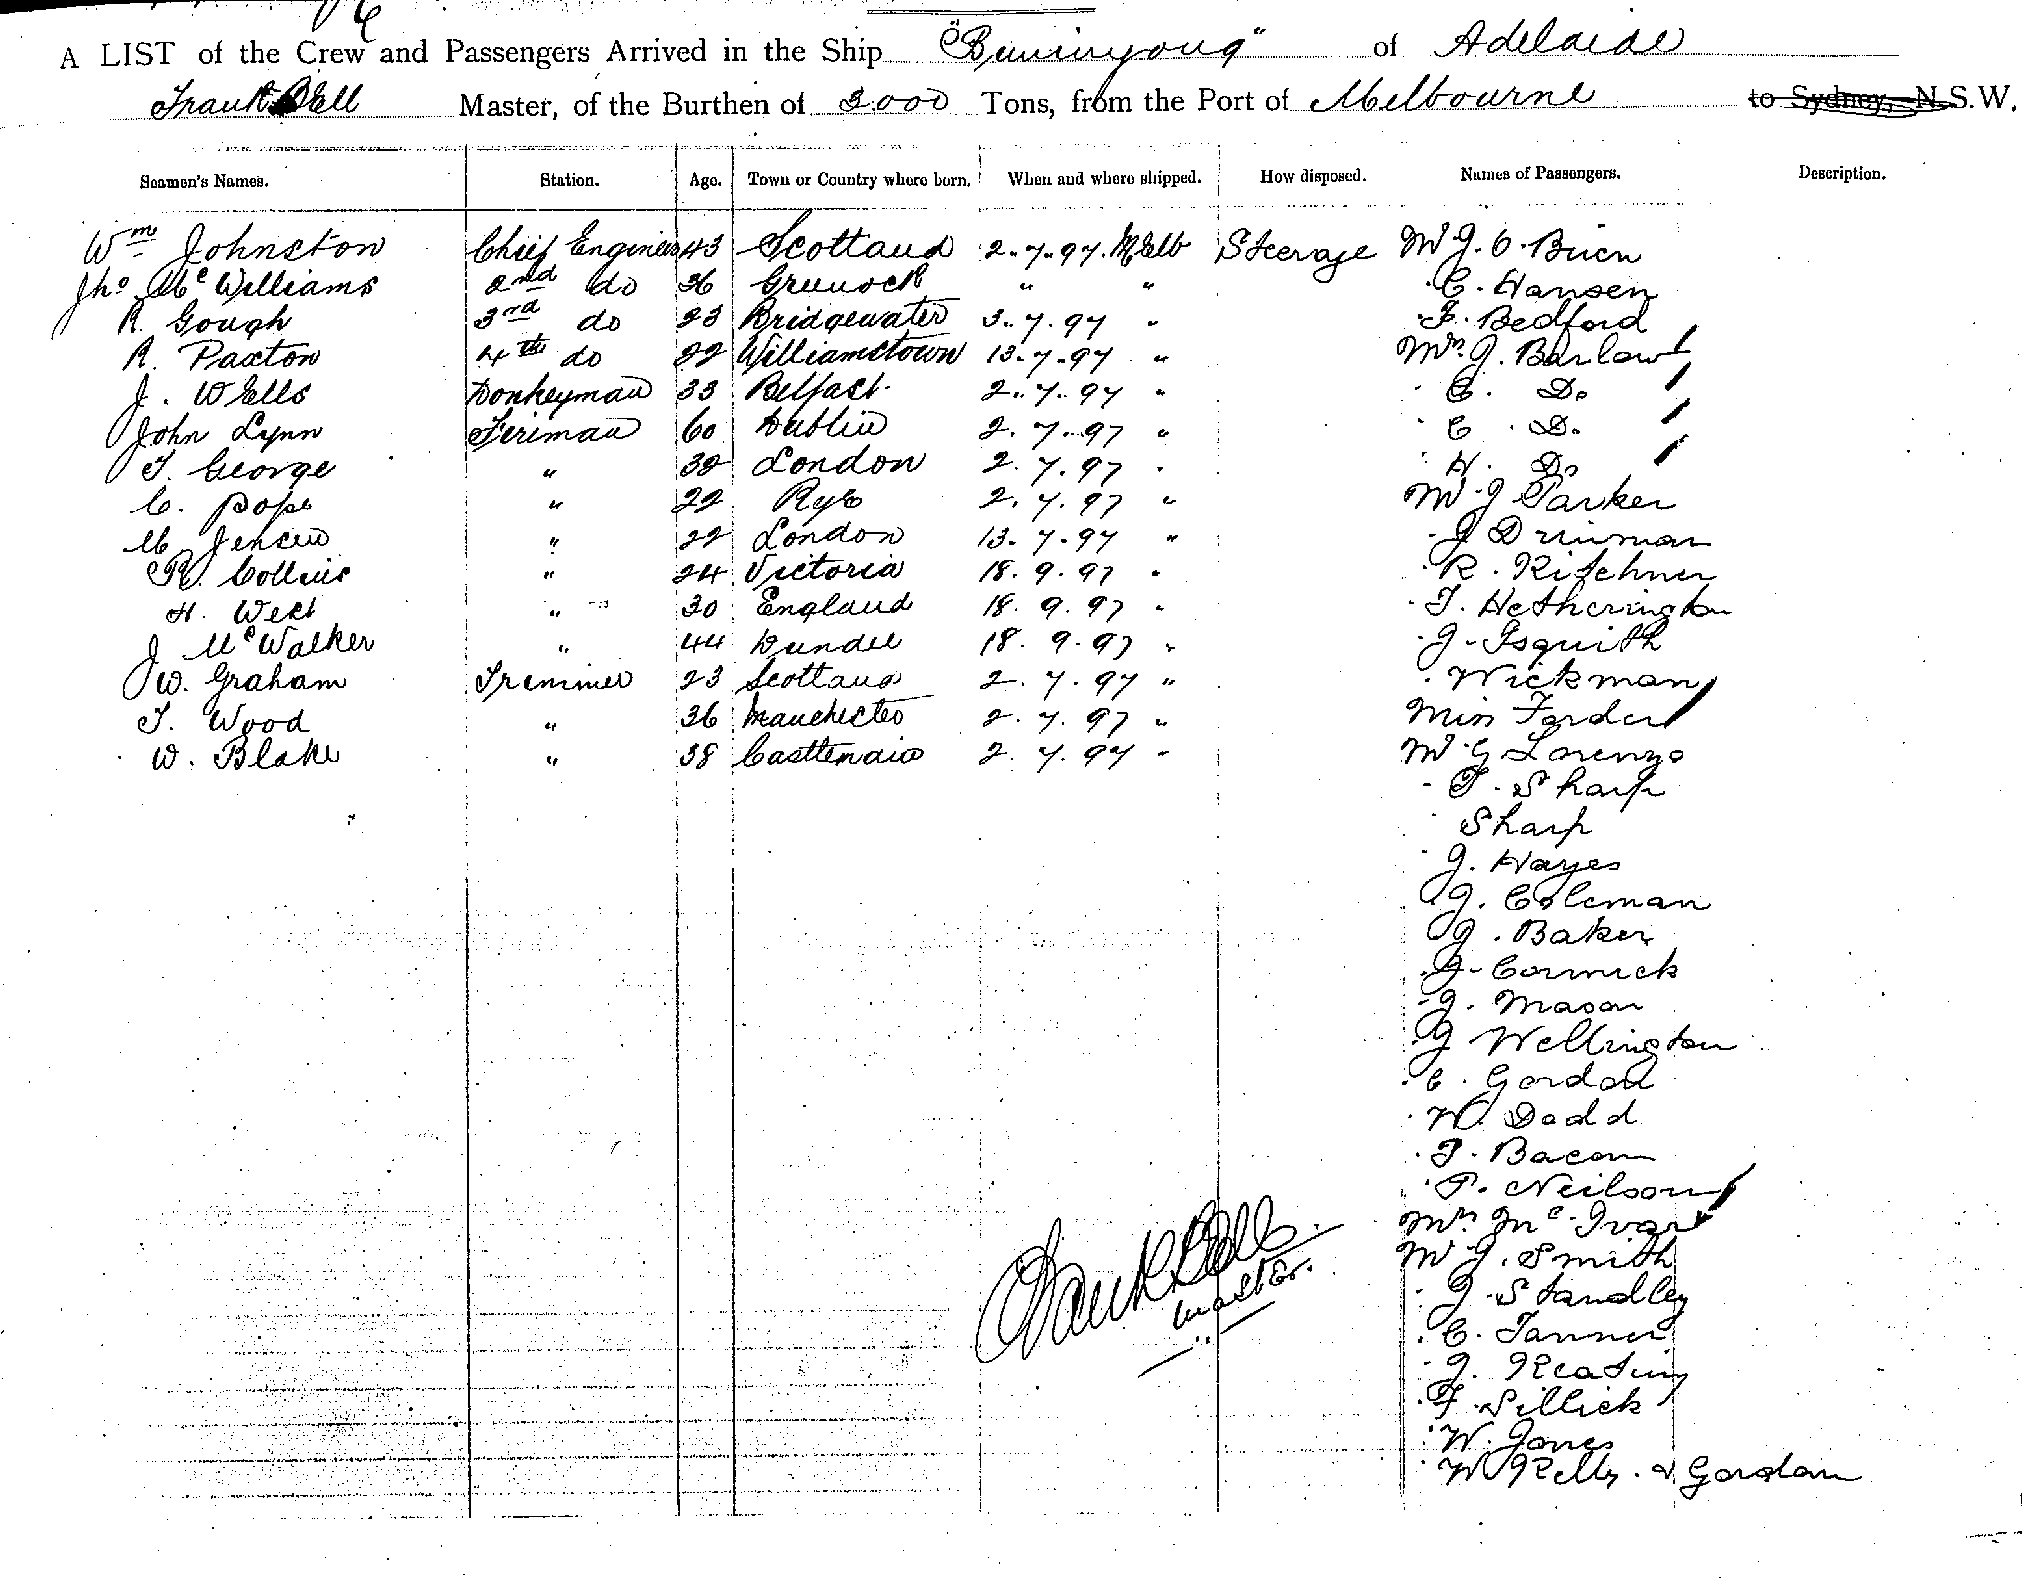 A LIST of the Crew and Passengers Arrived in the Ship "Buninyong" of Adelaide
Frank Bell Master, of the Burthen of 2000 Tons, from the Port of Melbourne to Sydney, N.S.W.
Seamen's Names. Station. Age. Town or Country where born. When and where shipped. How disposed. Names of Passengers. Description.
Wm Johnston Chief Engineer 43 Scotland 2.7.97. Melb Steerage Mr J. O. Brien
Jno McWilliams 2nd do 36 Greenock " " C. Hansen
R. Gough 3rd do 23 Bridgewater 3.7.97 " F. Bedford
R. Paxton 4th do 22 Williamstown 13.7.97 " Mrs J. Barlow
J. Wells Donkeyman 33 Belfast 2.7.97 " C. Do
John Lynn Fireman 60 Dublin 2.7.97 " C. Do
T. George " 32 London 2.7.97 " H. Do
C. Pope " 22 Rye 2.7.97 " Mr J Parker
M Jensen " 22 London 13.7.97 " J
R. Collins " 24 Victoria 18.9.97 " R. Kitchner
H. West " 30 England 18.9.97 " T. Hetherington
J McWalker " 44 Dundee 18.9.97 " J. Isquith
W. Graham Trimmer 23 Scotland 2.7.97 " Wickman
T. Wood " 36 Manchester 2.7.97 " Miss Forder
W. Blake " 38 Castlemaine 2.7.97 " Mr G Lorenzo
T. Sharp
Sharp
J. Hayes
J. Coleman
J. Baker
J. Cormick
J. Mason
J Wellington
C. Gordon
W. Dodd
T. Bacon
P. Neilson
Mrs Mc Ivor
Mr J. Smith
J. Standley
C. Tanner
J. Keating
F. Sillick
W. Jones
W Kelly. & Gordon
Frank Bell
Master.